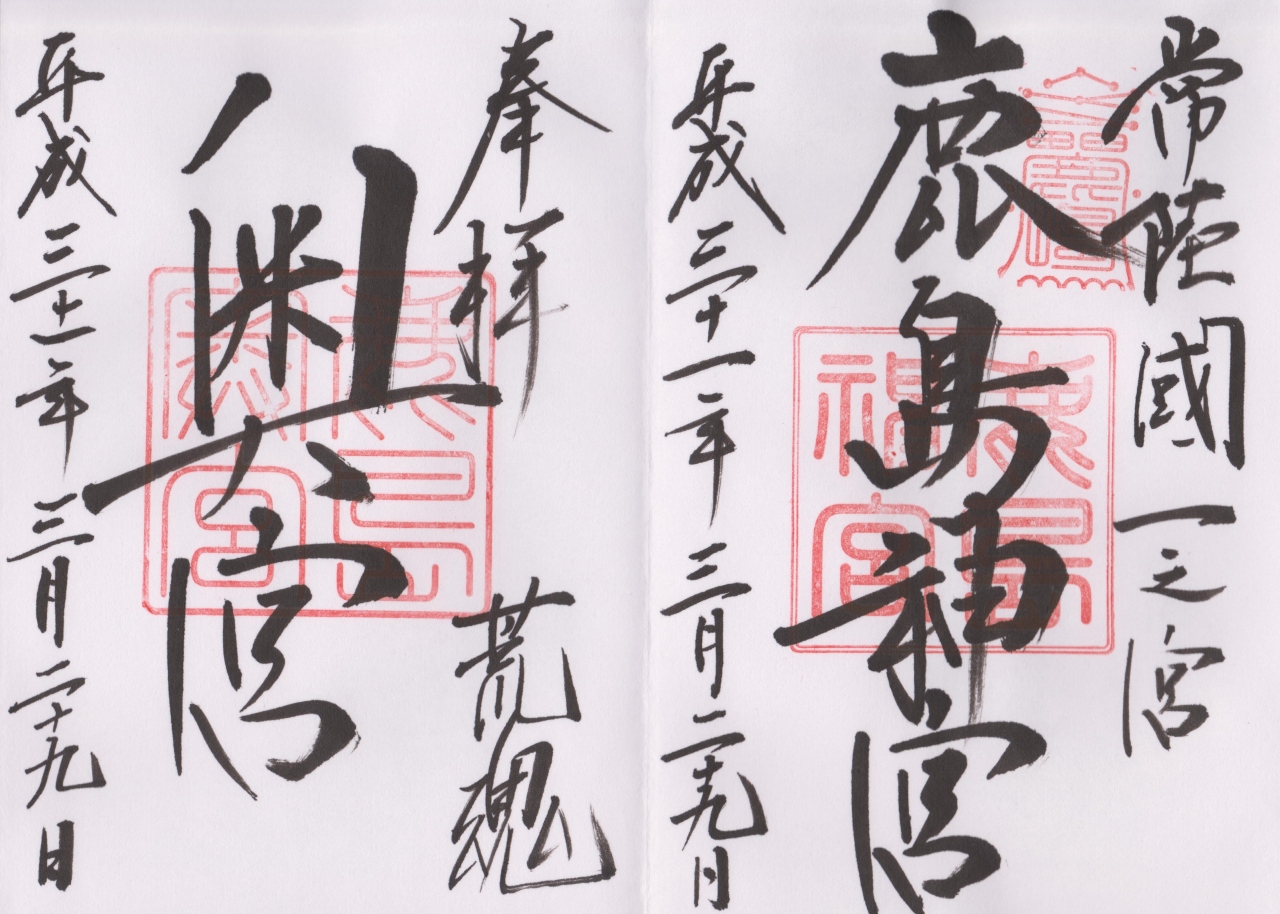 常陸國一之宮
鹿島神宮
鹿島神宮
平成三十一年三月二十九日
奉拝 荒魂
奥宮
鹿島奥宮
平成三十一年三月二十九日